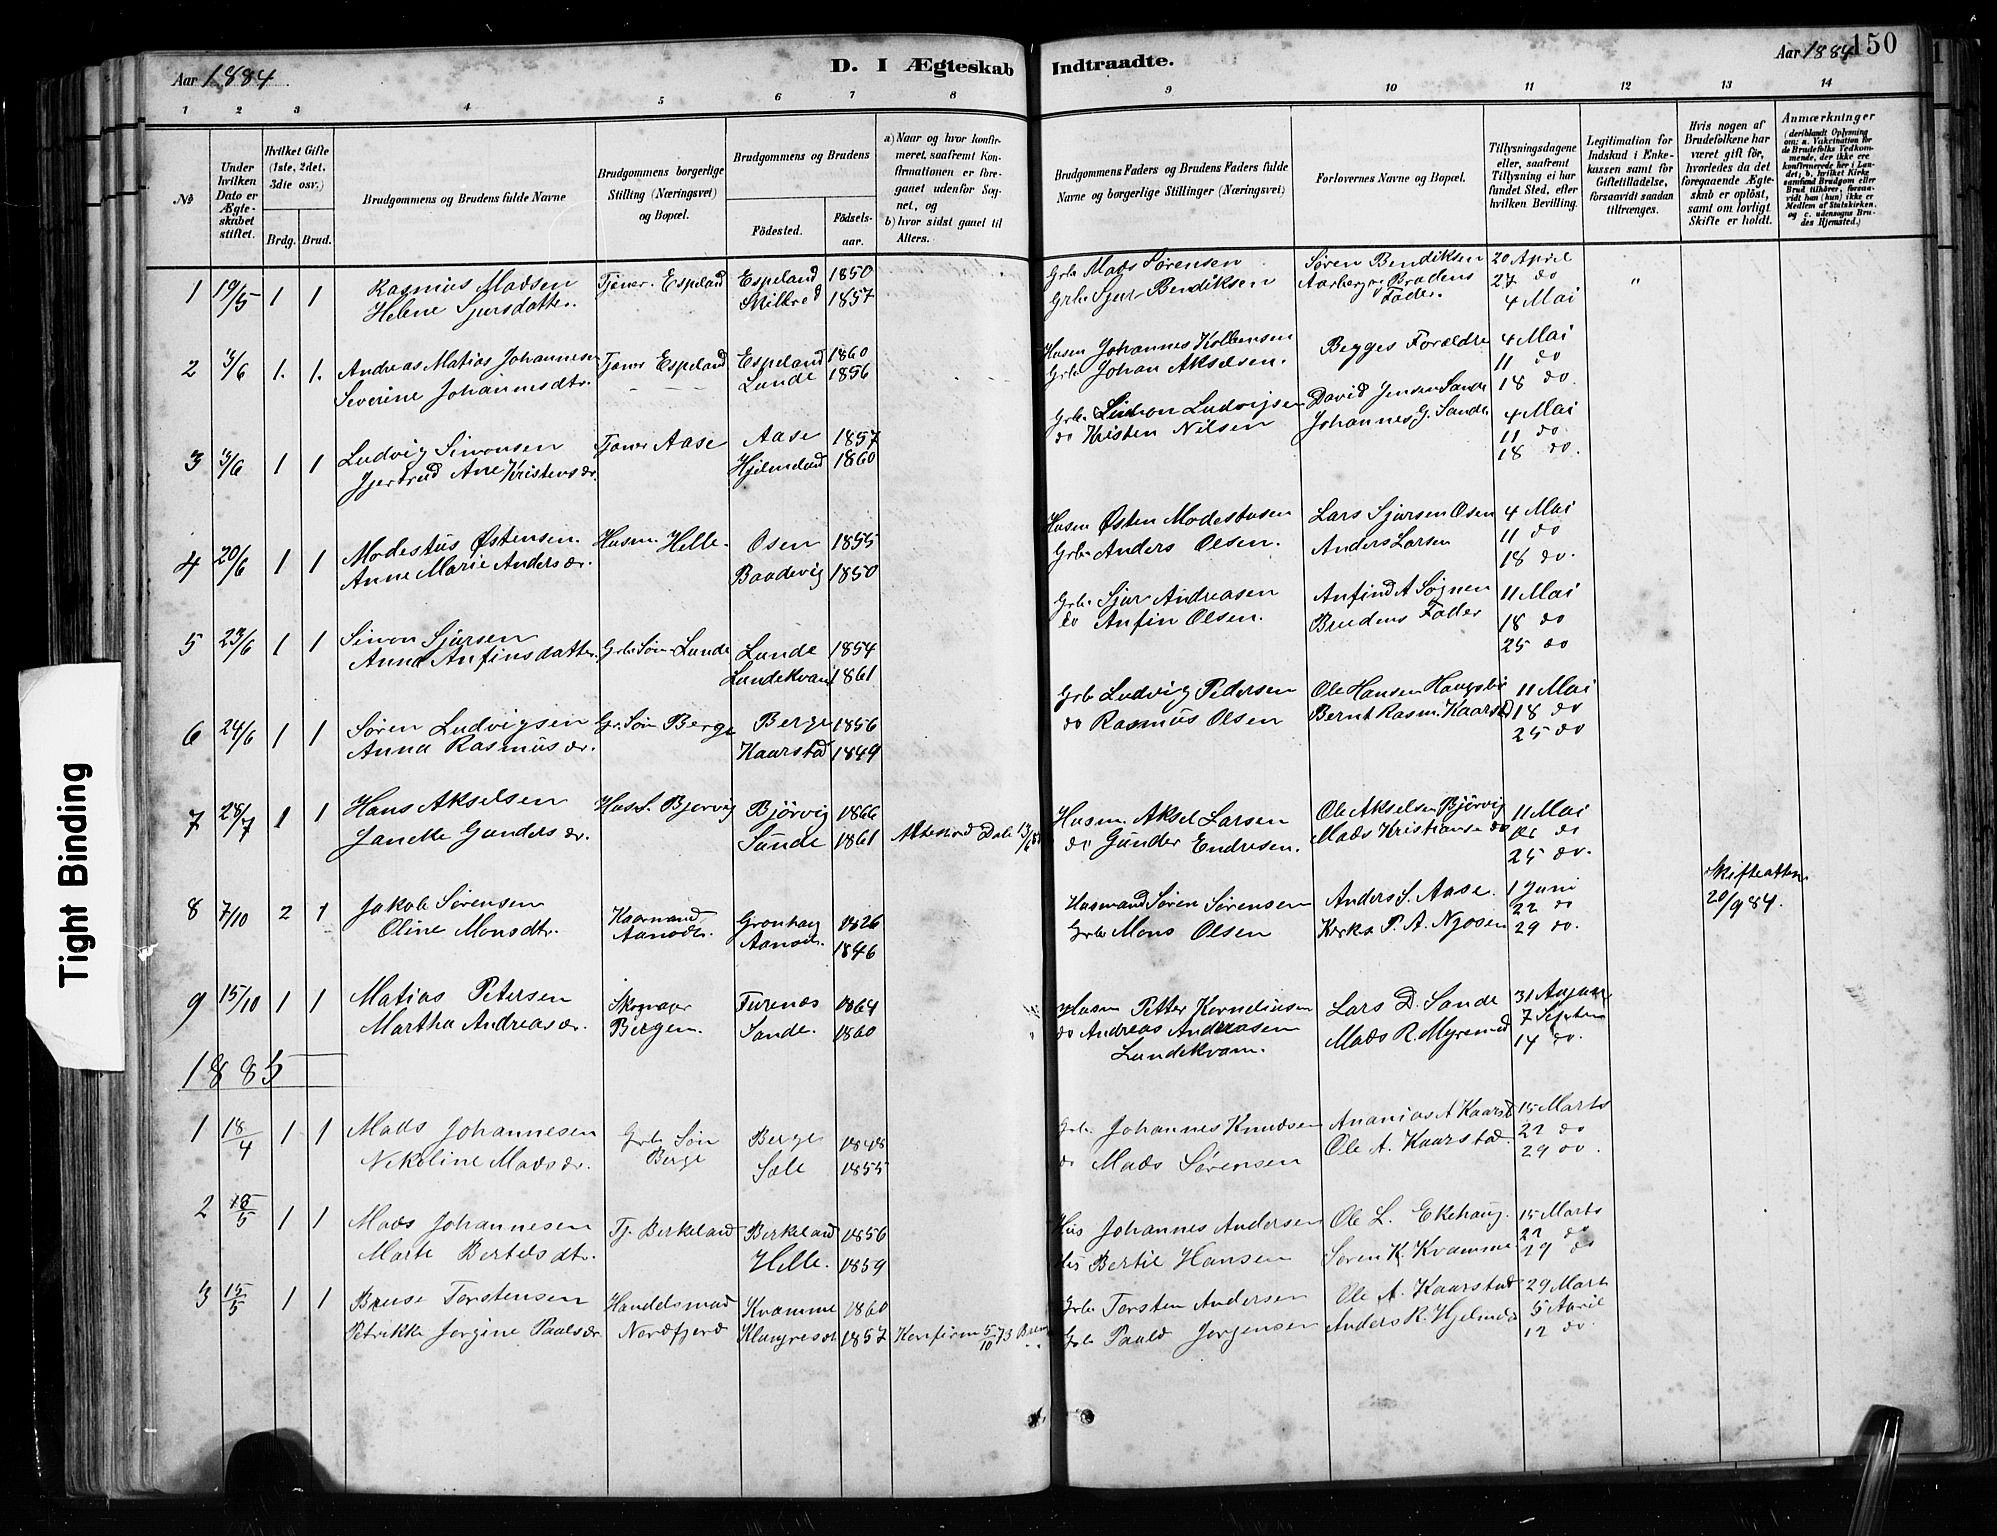 Aar 1884
D. I Ægteskab Indtraadte.
Aar 1884
150
1 2 3 4 5 6 7 8 9 10 11 12 13 14
No
Under hvilken Dato er Ægteskabet stiftet.
Hvilket Gifte (1ste, 2det, 3die osv.)
Brdg. Brud.
Brudgommens og Brudens fulde Navne
Brudgommens borgerlige Stilling (Næringsvei) og Bopæl.
Brudgommens og Brudens
Födested. Födselsaar.
a) Naar og hvor konfirmeret, saafremt Konfirmationen er foregaaet udenfor Sognet, og
b) hvor sidst gaaet til Alters.
Brudgommens Faders og Brudens Faders fulde Navne og borgerlige Stillinger (Næringsvei)
Forlovernes Navne og Bopæl.
Tillysningsdagene eller, saafremt Tillysning ei har fundet Sted, efter hvilken Bevilling.
Legitimation for Indskud i Enkekassen samt for Giftetilladelse, forsaavidt saadan tiltrænges.
Hvis nogen af Brudefolkene har været gift för, hvorledes da det foregaaende Ægteskab er oplöst, samt om lovligt Skifte er holdt.
Anmærkninger
(deriblandt Oplysning om: a. Vakcination for de Brudefolks Vedkommende, der ikke ere konfirmerede her i Landet; b. hvilket Kirkesamfund Brudgom eller Brud tilhörer, forsaavidt han (hun) ikke er Medlem af Statskirken, og c. udensogns Brudes Hjemsted.)
1 19/5 1 1 Rasmus Madsen Tjener Espeland Espeland 1850 Grbr Mads Sørensen Søren Bendiksen 20 April
Helene Sjursdatter 1857 Grbr Sjur Bendiksen Aarberg og Brudens Fader. 27 do "
4 Mai
2 13/6 1. 1. Andreas Matias Johannesen Tjener Espeland Espeland 1860 Husm Johannes Kolbensen Begges Forældre 4 Mai
Severine Johannesdtr. Lunde 1856 Grbr Johan Akselsen. 11 do
18 do.
3 13/6 1 1 Ludvig Simonsen Tjener Aase Aase 1857 Grbr Simon Ludvigsen David Jensen Sande 4 Mai
Gjertrud Ane Kristensdr. 1860 do Kristen Nilsen Johannes G. Sande 11 do
18 do.
4 20/6 1 1 Modestus Østensen Husm Helle Osen 1855 Husm Østen Modestusen Lars Sjursen Osen 4 Mai
Anne Marie Andersdr. Baadevig 1850 Grbr Anders Olsen. Anders Larsen 11 do
18 do.
5 23/6 1 1 Simon Sjursen Grbr Søn Lunde Lunde 1854 Grbr Sjur Andreasen Anfind A Søgnen 11 Mai
Anna Anfinsdatter. Lundekvam 1861 do Anfin Olsen. Brudens Fader 18 do
25 do
6 24/6 1 1 Søren Ludvigsen Gr. Søn Berge Berge 1856 Grbr Ludvig Pedersen Ole Hansen 11 Mai
Anna Rasmusdr. Kaarstad 1849 do Rasmus Olsen Bernt Rasm. Kaarstad 18 do
25 do
7 28/7 1 1 Hans Akselsen Bjørvig Bjørvig 1866 Husm. Aksel Larsen Ole Akselsen Bjørvig 11 Mai
Janette Gundersdr. Sunde 1861 do Gunder Endresen. Mads Kristianse do do
25 do.
8 7/10 2 1 Jakob Sørensen 1826 Husmand Søren Sørensen Anders S. Aase. 1 Juni Skifteattest
Oline Monsdtr. 1846 Grbr Mons Olsen Kirks. P. A. Njøsen 22 do 20/9 84.
29 do.
9 15/10 1 1 Matias Petersen Skomager Furenæs 1864 Husm Petter Korneliusen Lars D. Sande 31 August
Martha Andreasdr. Bergen. Sande. 1860 do Andreas Andreasen Mads R. Myremed 7 Septem
Lundekvam. 14 do.
1885
1 18/4 1 1 Mads Johannesen Grbr Søn Berge 1848 Grbr Johannes Knudsen Ananias A Kaarst 15 Marts
Nikoline Madsdr. Berge Sole 1855 do Mads Sørensen Ole A. Kaarstad. 22 do
29 do.
2 18/5 1 1 Mads Johannesen Tj. Birkeland Birkeland 1856 Hus Johannes Andersen Ole L. Ekehaug. 15 Marts
Marte Bertelsdtr. Helle. 1859 Hus Bertil Hansen Søren K. Kvamme. 22 do
29 do
3 15/5 1 1 Bruse Torstensen Handelsmand Kvamme 1860 Grbr Torsten Andersen Ole A. Kaarstad 29 Mart
Petrikke Jørgine Paulsdr. Nordfjord 1857 Konfirm 5/10 73 Grbr Pauld Jørgensen Anders R. Hjelmed 5 April
12 do.
Tight Binding